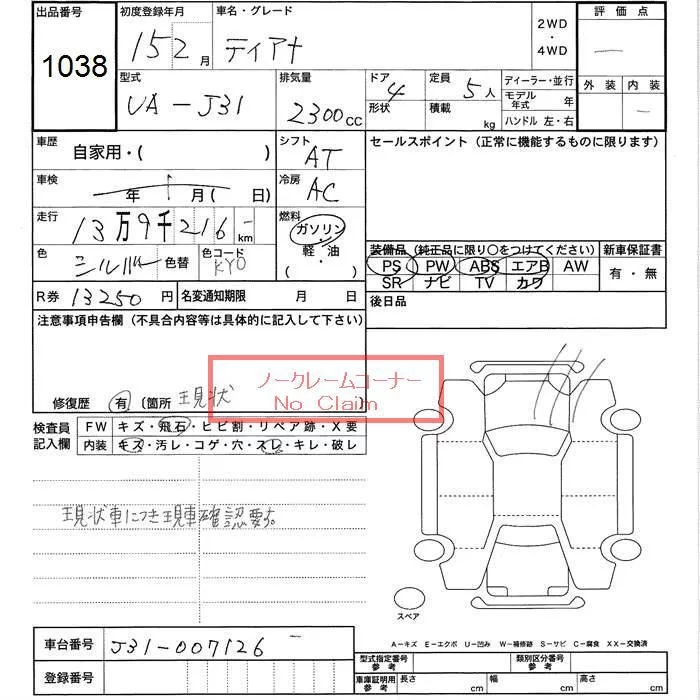 出品番号 初度登録年月 車名・グレード 2WD・4WD 評価点
1038 15 2月 ティアナ
型式 排気量 ドア 形状 4 定員 5人 積載 kg ディーラー・並行 外装 内装
UA-J31 2300cc モデル年式 年
ハンドル 左・右
車歴 自家用・( ) シフト AT セールスポイント(正常に機能するものに限ります)
車検 年 月( 日) 冷房 AC
走行 13万9千216km 燃料 ガソリン 軽・油 ( )
色 シルバー 色替 色コード KY0
装備品(純正品に限り〇をつけてください) 新車保証書
PS PW ABS エアB AW 有・無
SR ナビ TV カワ
R券 13250円 名変通知期限 月 日 後日品
注意事項申告欄(不具合内容等は具体的に記入して下さい)
ノークレームコーナー
No Claim
修復歴 有 〔箇所 現状 〕
検査員記入欄 FW キズ・飛石・ヒビ割・リペア跡・X要
内装 キズ・汚レ・コゲ・穴・スレ・キレ・破レ
現状車につき現車確認要す。
スペア
A-キズ E-エクボ U-凹み W-補修跡 S-サビ C-腐食 XX-交換済
車台番号 J31-007126
登録番号
型式指定番号 参考 類別区分番号 参考
車庫証明用 参考 長さ cm 幅 cm 高さ cm